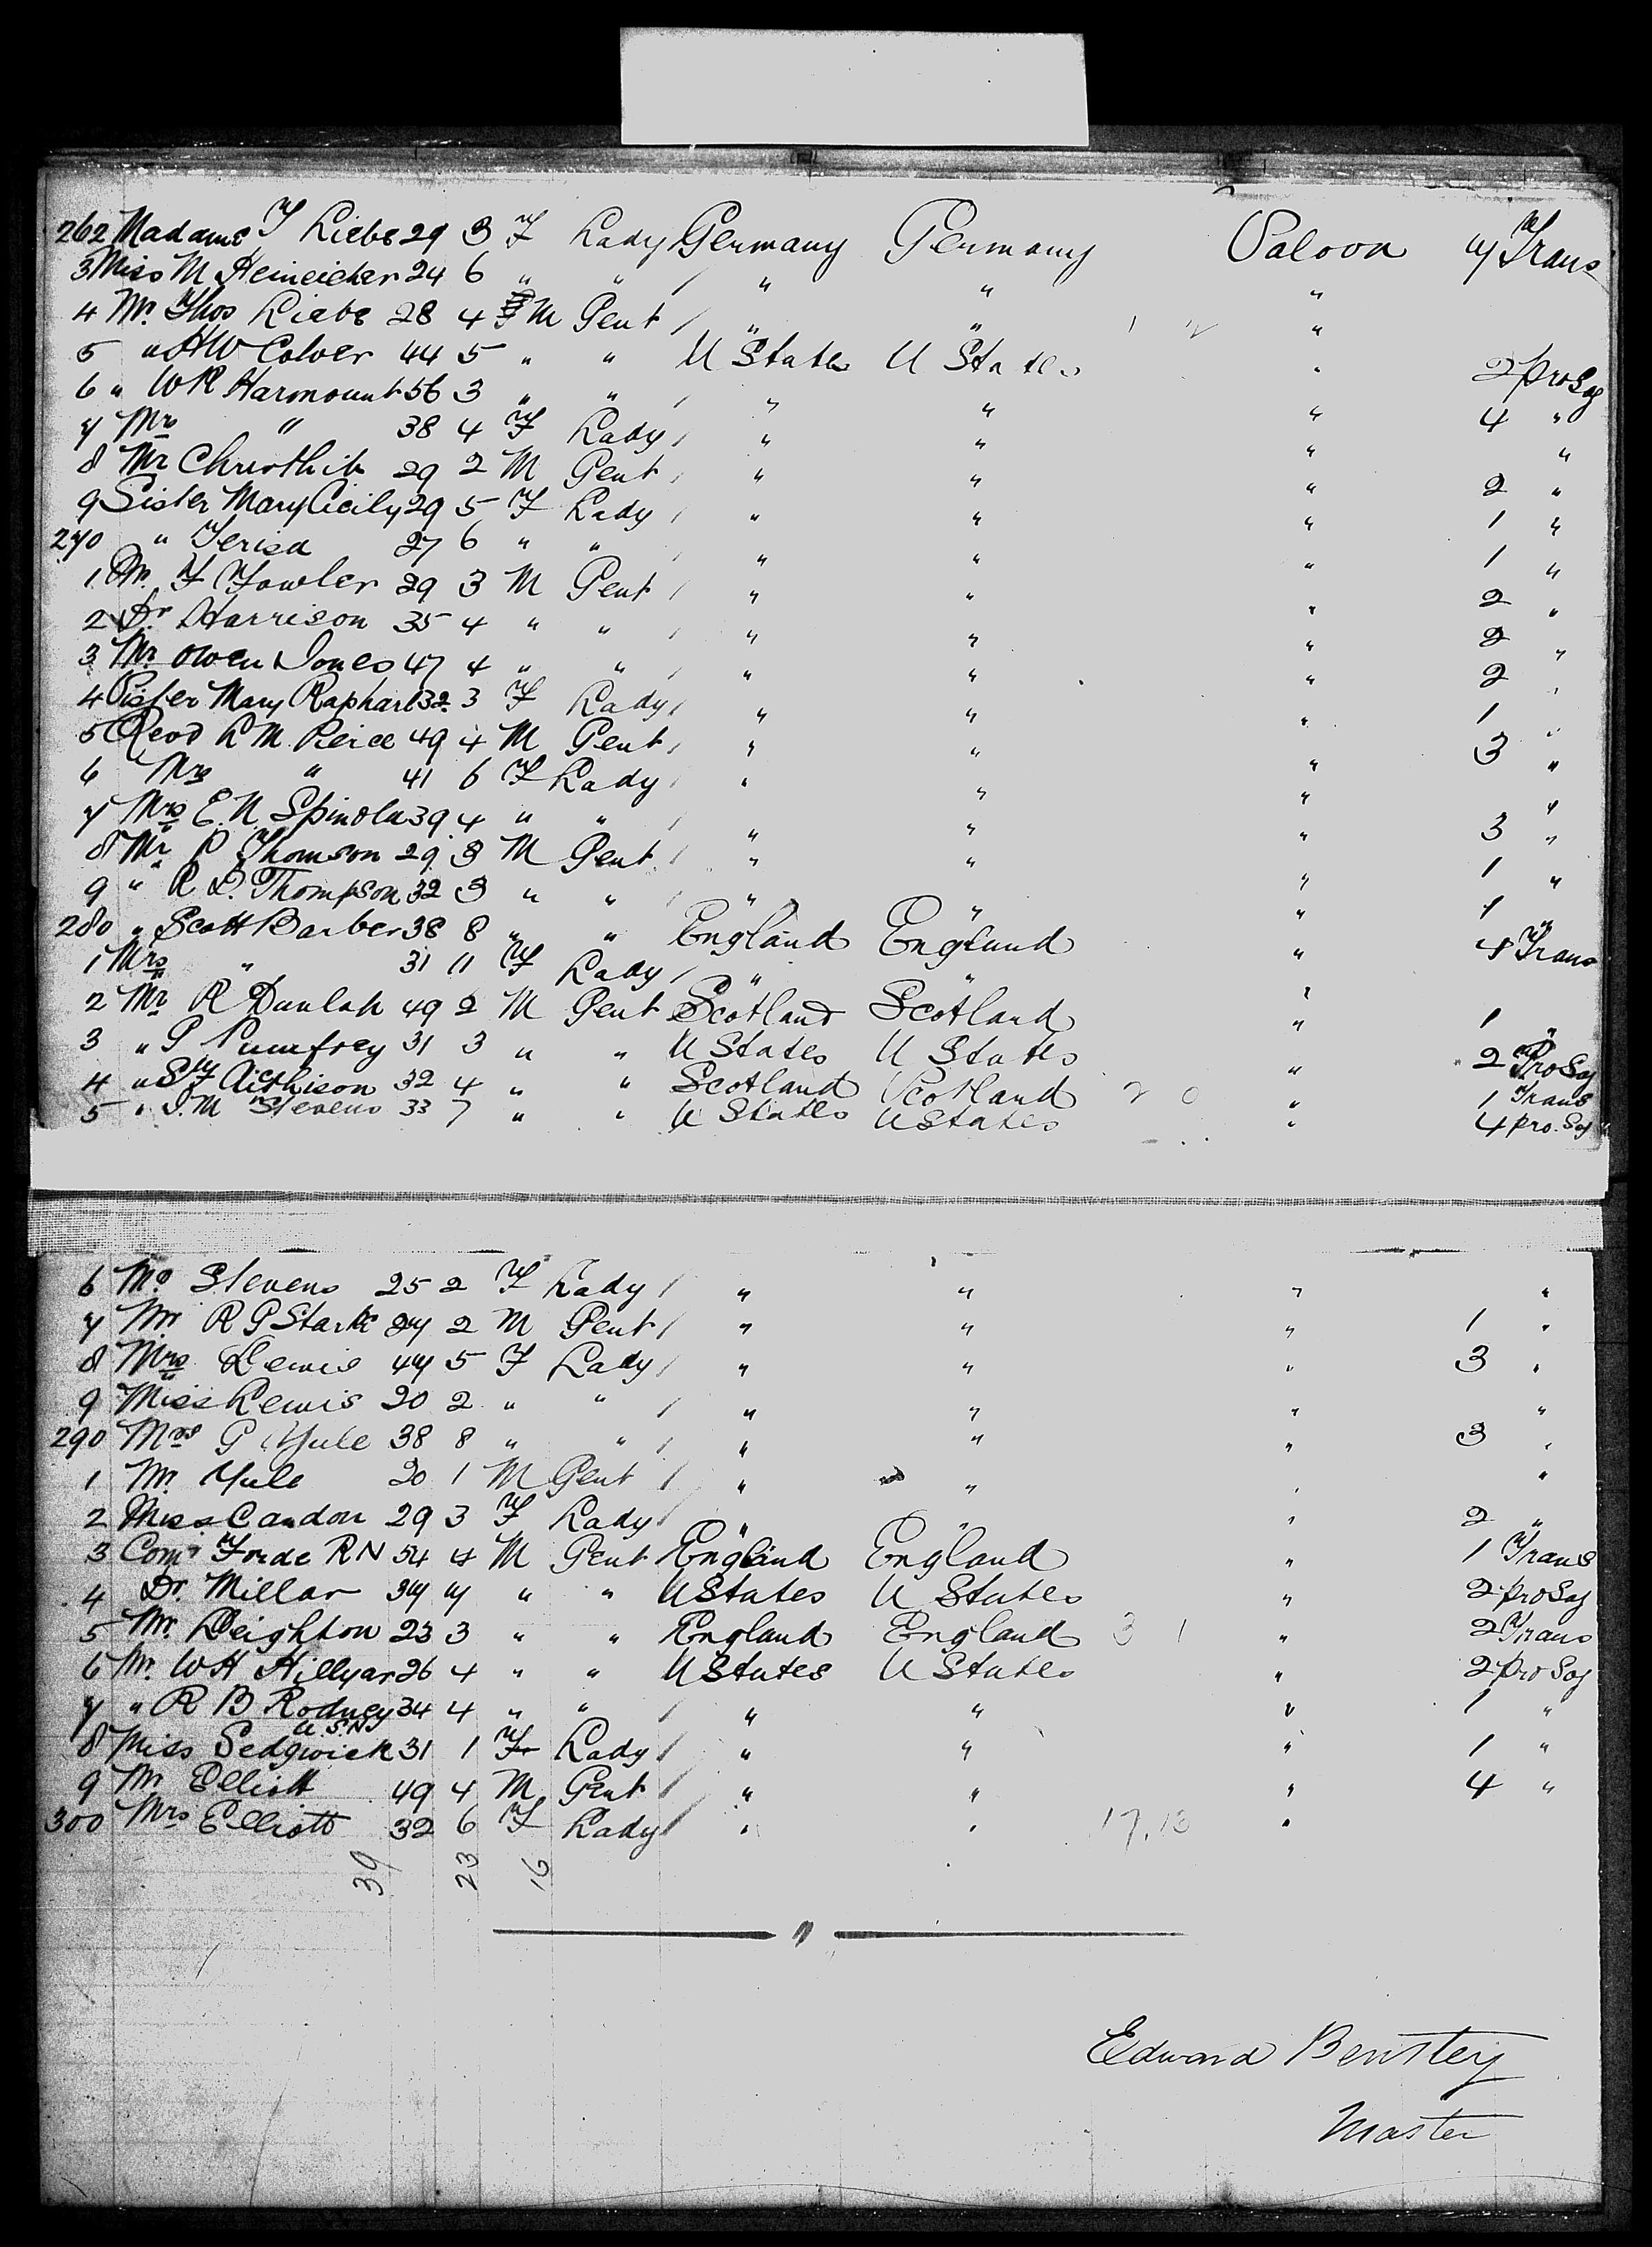 262 Madame T Liebe 29 3 F Lady Germany Germany Saloon 7 Trans
3 Miss M Heineicher 24 6 " " / " " "
4 Mr. Thos Liebe 28 4 M Gent / " " 1 2 "
5 " HW Colver 44 5 " " U States U States " 2 pro Soj
6 " WR Harmount 56 3 " " / " " " 4 "
7 Mrs " 38 4 F Lady / " " " "
8 Mr 29 2 M Gent / " " " 2 "
9 Sister Mary Cicily 29 5 F Lady / " " " 1 "
270 " Terisa 27 6 " " / " " " 1 "
1 Mr. F Fowler 29 3 M Gent / " " " 2 "
2 Dr. Harrison 35 4 " " / " " " 2 "
3 Mr Owen Jones 47 4 " " / " " " 2 "
4 Sister Mary Raphael 32 3 F Lady / " " " 1 "
5 Revd L M. Peirce 49 4 M Gent / " " " 3 "
6 Mrs " 41 6 F Lady / " " " "
7 Mrs E. N. Spinola 39 4 " " / " " " 3 "
8 Mr P Thomson 29 3 M Gent / " " " 1 "
9 " R D. Thompson 32 3 " " / " " " 1 "
280 " Scott Barber 38 8 " " England England " 4 Trans
1 Mrs " 31 11 F Lady / " " "
2 Mr R Dunlap 49 2 M Gent Scotland Scotland " 1 "
3 " G Pumfrey 31 3 " " U States U States " 2 Pro Soj
4 " Aithison 32 4 " " Scotland Scotland 2 0 " 1 Trans
5 " J. M Stevens 33 7 " " U States U States " 4 pro. Soj
6 Mrs Stevens 25 2 F Lady / " " " "
7 Mr R G Stark 27 2 M Gent / " " " 1 "
8 Mrs Lewis 47 5 F Lady / " " " 3 "
9 Miss Lewis 20 2 " " / " " " "
290 Mrs G Yule 38 8 " " / " " " 3 "
1 Mr. Yule 20 1 M Gent / " " " "
2 Miss Candon 29 3 F Lady / " " " 2 "
3 Comr Forde RN 54 4 M Gent England England " 1 Trans
4 Dr. Millar 37 7 " " U States U States " 2 pro Soj
5 Mr. Deighton 23 3 " " England England 3 1 " 2 Trans
6 Mr. W H Hillyar 26 4 " " U States U States " 2 pro Soj
7 " R B Rodney 34 4 " " / " " " 1 "
U.S.N
8 Miss Sedgwick 31 1 F Lady / " " " 1 "
9 Mr Elliott 49 4 M Gent / " " " 4 "
300 Mrs Elliott 32 6 F Lady / " " 17.13 "
39 23 16
Edward
Master